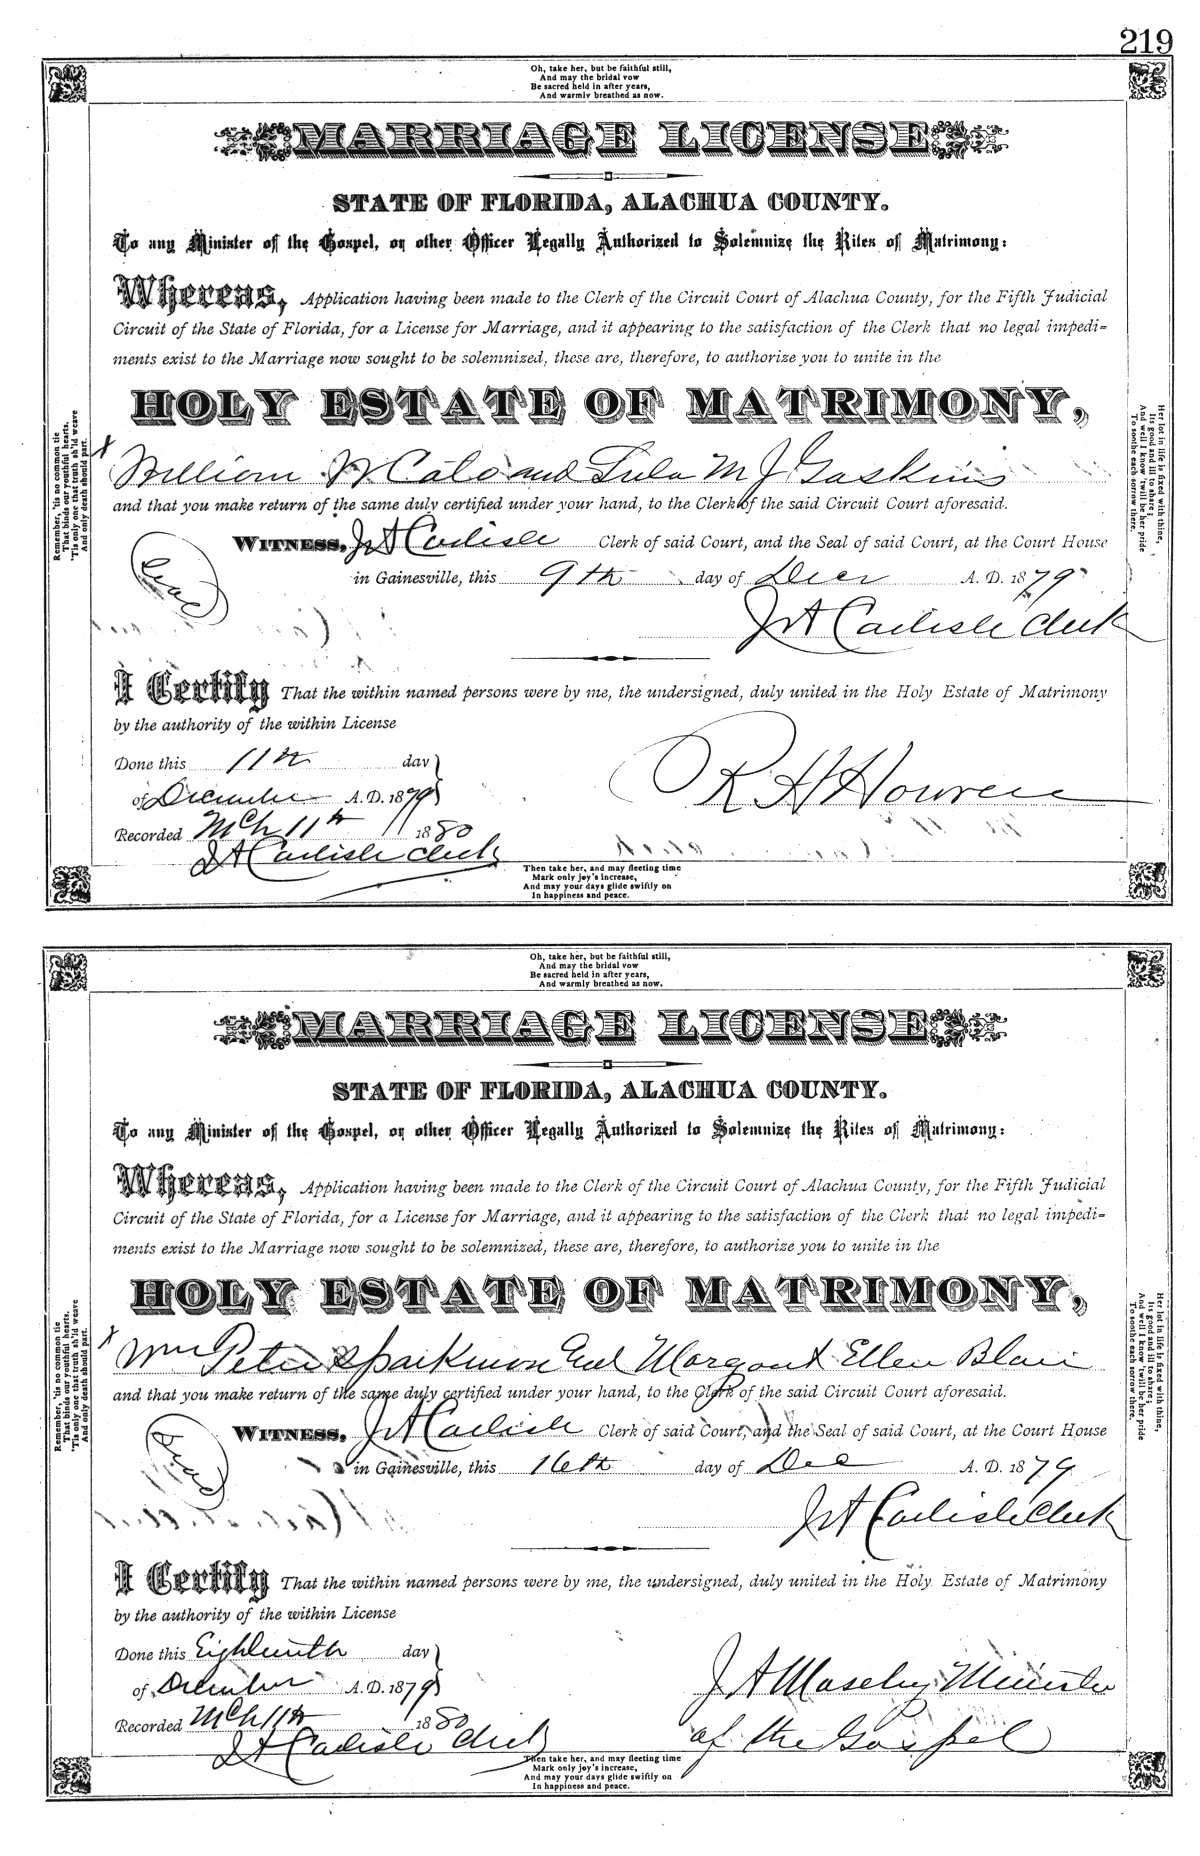 219
Oh, take her, but be faithful still,
And may the bridal vow
Be sacred held in after years,
And warmly breathed as now.
MARRIAGE LICENSE
STATE OF FLORIDA, ALACHUA COUNTY.
To any Minister of the Gospel, or other Officer Legally Authorized to Solemnize the Rites of Matrimony:
Whereas, Application having been made to the Clerk of the Circuit Court of Alachua County, for the Fifth Judicial
Circuit of the State of Florida, for a License for Marriage, and it appearing to the satisfaction of the Clerk that no legal impedi-
ments exist to the Marriage now sought to be solemnized, these are, therefore, to authorize you to unite in the
HOLY ESTATE OF MATRIMONY,
x William W Cato and Lula M J Gaskins
and that you make return of the same duly certified under your hand, to the Clerk of the said Circuit Court aforesaid.
WITNESS, J A Carlisle Clerk of said Court, and the Seal of said Court, at the Court House
(Seal)
in Gainesville, this 9th day of Decr A. D. 1879
J A Carlisle Clerk
I Certify That the within named persons were by me, the undersigned, duly united in the Holy Estate of Matrimony
by the authority of the within License
Done this 11th day
of December A. D. 1879
R H Howren
Recorded Mch 11th 1880
J A Carlisle Clerk
Then take her, and may fleeting time
Mark only joy's increase,
And may your days glide swiftly on
In happiness and peace.
Remember, 'tis no common tie
That binds our youthful hearts,
'Tis only one that truth sh'ld weave
And only death should part.
Her lot in life is fixed with thine,
Its good and ill to share;
And well I know 'twill be her pride
To soothe each sorrow there.
Oh, take her, but be faithful still,
And may the bridal vow
Be sacred held in after years,
And warmly breathed as now.
MARRIAGE LICENSE
STATE OF FLORIDA, ALACHUA COUNTY.
To any Minister of the Gospel, or other Officer Legally Authorized to Solemnize the Rites of Matrimony:
Whereas, Application having been made to the Clerk of the Circuit Court of Alachua County, for the Fifth Judicial
Circuit of the State of Florida, for a License for Marriage, and it appearing to the satisfaction of the Clerk that no legal impedi-
ments exist to the Marriage now sought to be solemnized, these are, therefore, to authorize you to unite in the
HOLY ESTATE OF MATRIMONY,
x Wm Peter Sparkman And Margaret Ellen Blair
and that you make return of the same duly certified under your hand, to the Clerk of the said Circuit Court aforesaid.
WITNESS, J A Carlisle Clerk of said Court, and the Seal of said Court, at the Court House
(Seal)
in Gainesville, this 16th day of Dec A. D. 1879
J A Carlisle Clerk
I Certify That the within named persons were by me, the undersigned, duly united in the Holy Estate of Matrimony
by the authority of the within License
Done this Eighteenth day
of December A. D. 1879
J A Maseby Minister
of the Gospel
Recorded Mch 11th 1880
J A Carlisle Clerk
Then take her, and may fleeting time
Mark only joy's increase,
And may your days glide swiftly on
In happiness and peace.
Remember, 'tis no common tie
That binds our youthful hearts,
'Tis only one that truth sh'ld weave
And only death should part.
Her lot in life is fixed with thine,
Its good and ill to share;
And well I know 'twill be her pride
To soothe each sorrow there.